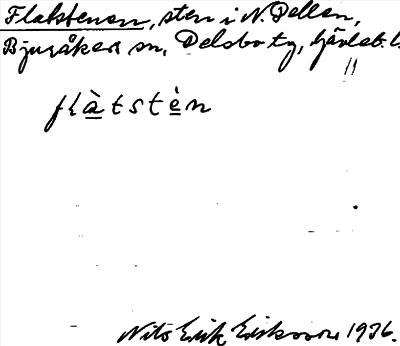 Flatstenen, sten i N. Dellen,
Bjuråkers sn, Delsbo tg, Gävleb. l.
flàtstèn
Nils Erik Eriksson 1936.